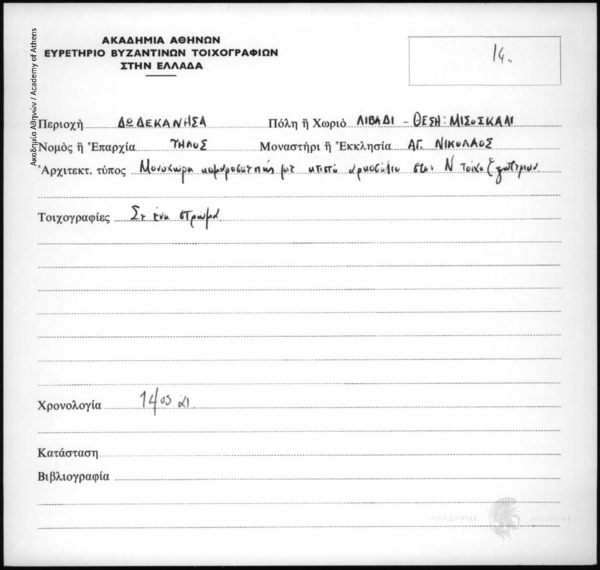 ΑΚΑΔΗΜΙΑ ΑΘΗΝΩΝ
ΕΥΡΕΤΗΡΙΟ ΒΥΖΑΝΤΙΝΩΝ ΤΟΙΧΟΓΡΑΦΙΩΝ
ΣΤΗΝ ΕΛΛΑΔΑ
14.
Ακαδημία Αθηνών / Academy of Athens
Περιοχή ΔΩΔΕΚΑΝΗΣΑ Πόλη ἤ Χωριό ΛΙΒΑΔΙ - ΘΕΣΗ: ΜΙΣΟΣΚΑΛΙ
Νομός ἤ Ἐπαρχία ΤΗΛΟΣ Μοναστήρι ἤ Ἐκκλησία ΑΓ. ΝΙΚΟΛΑΟΣ
Ἀρχιτεκτ. τύπος Μονόχωρη καμαροσκεπής με κτιστό αρκοσόλιο στον Ν τοίχο εξωτερικά
Τοιχογραφίες Σε ένα στρώμα
Χρονολογία 14ος αι
Κατάσταση
Βιβλιογραφία